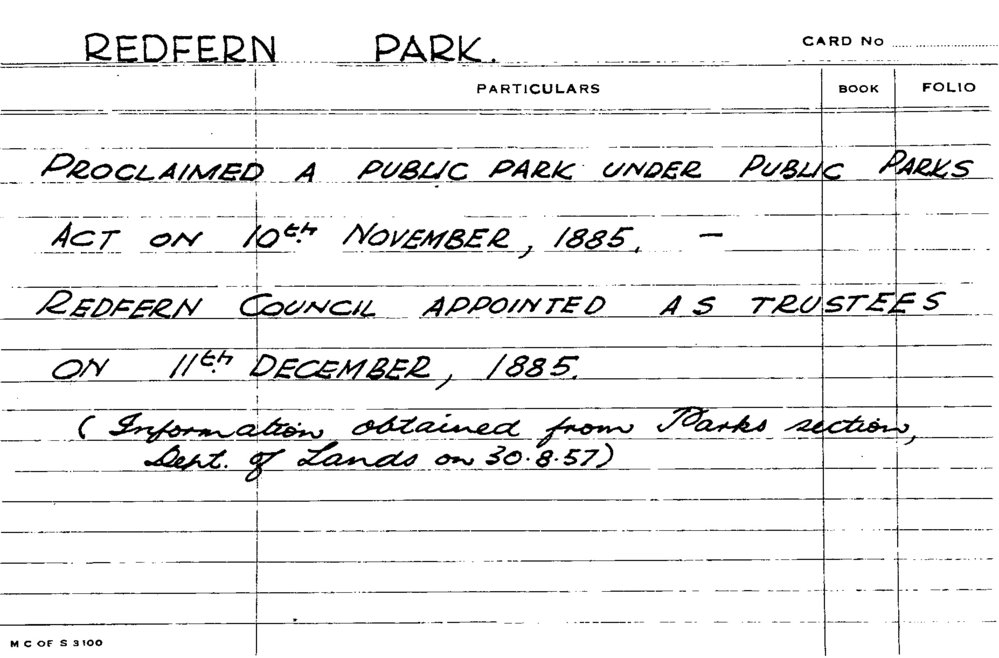 REDFERN PARK.
CARD No
PARTICULARS BOOK FOLIO
PROCLAIMED A PUBLIC PARK UNDER PUBLIC PARKS
ACT ON 10th NOVEMBER, 1885. —
REDFERN COUNCIL APPOINTED AS TRUSTEES
ON 11th DECEMBER, 1885.
(Information obtained from Parks section,
Dept. of Lands on 30.8.57)
M C OF S 3100